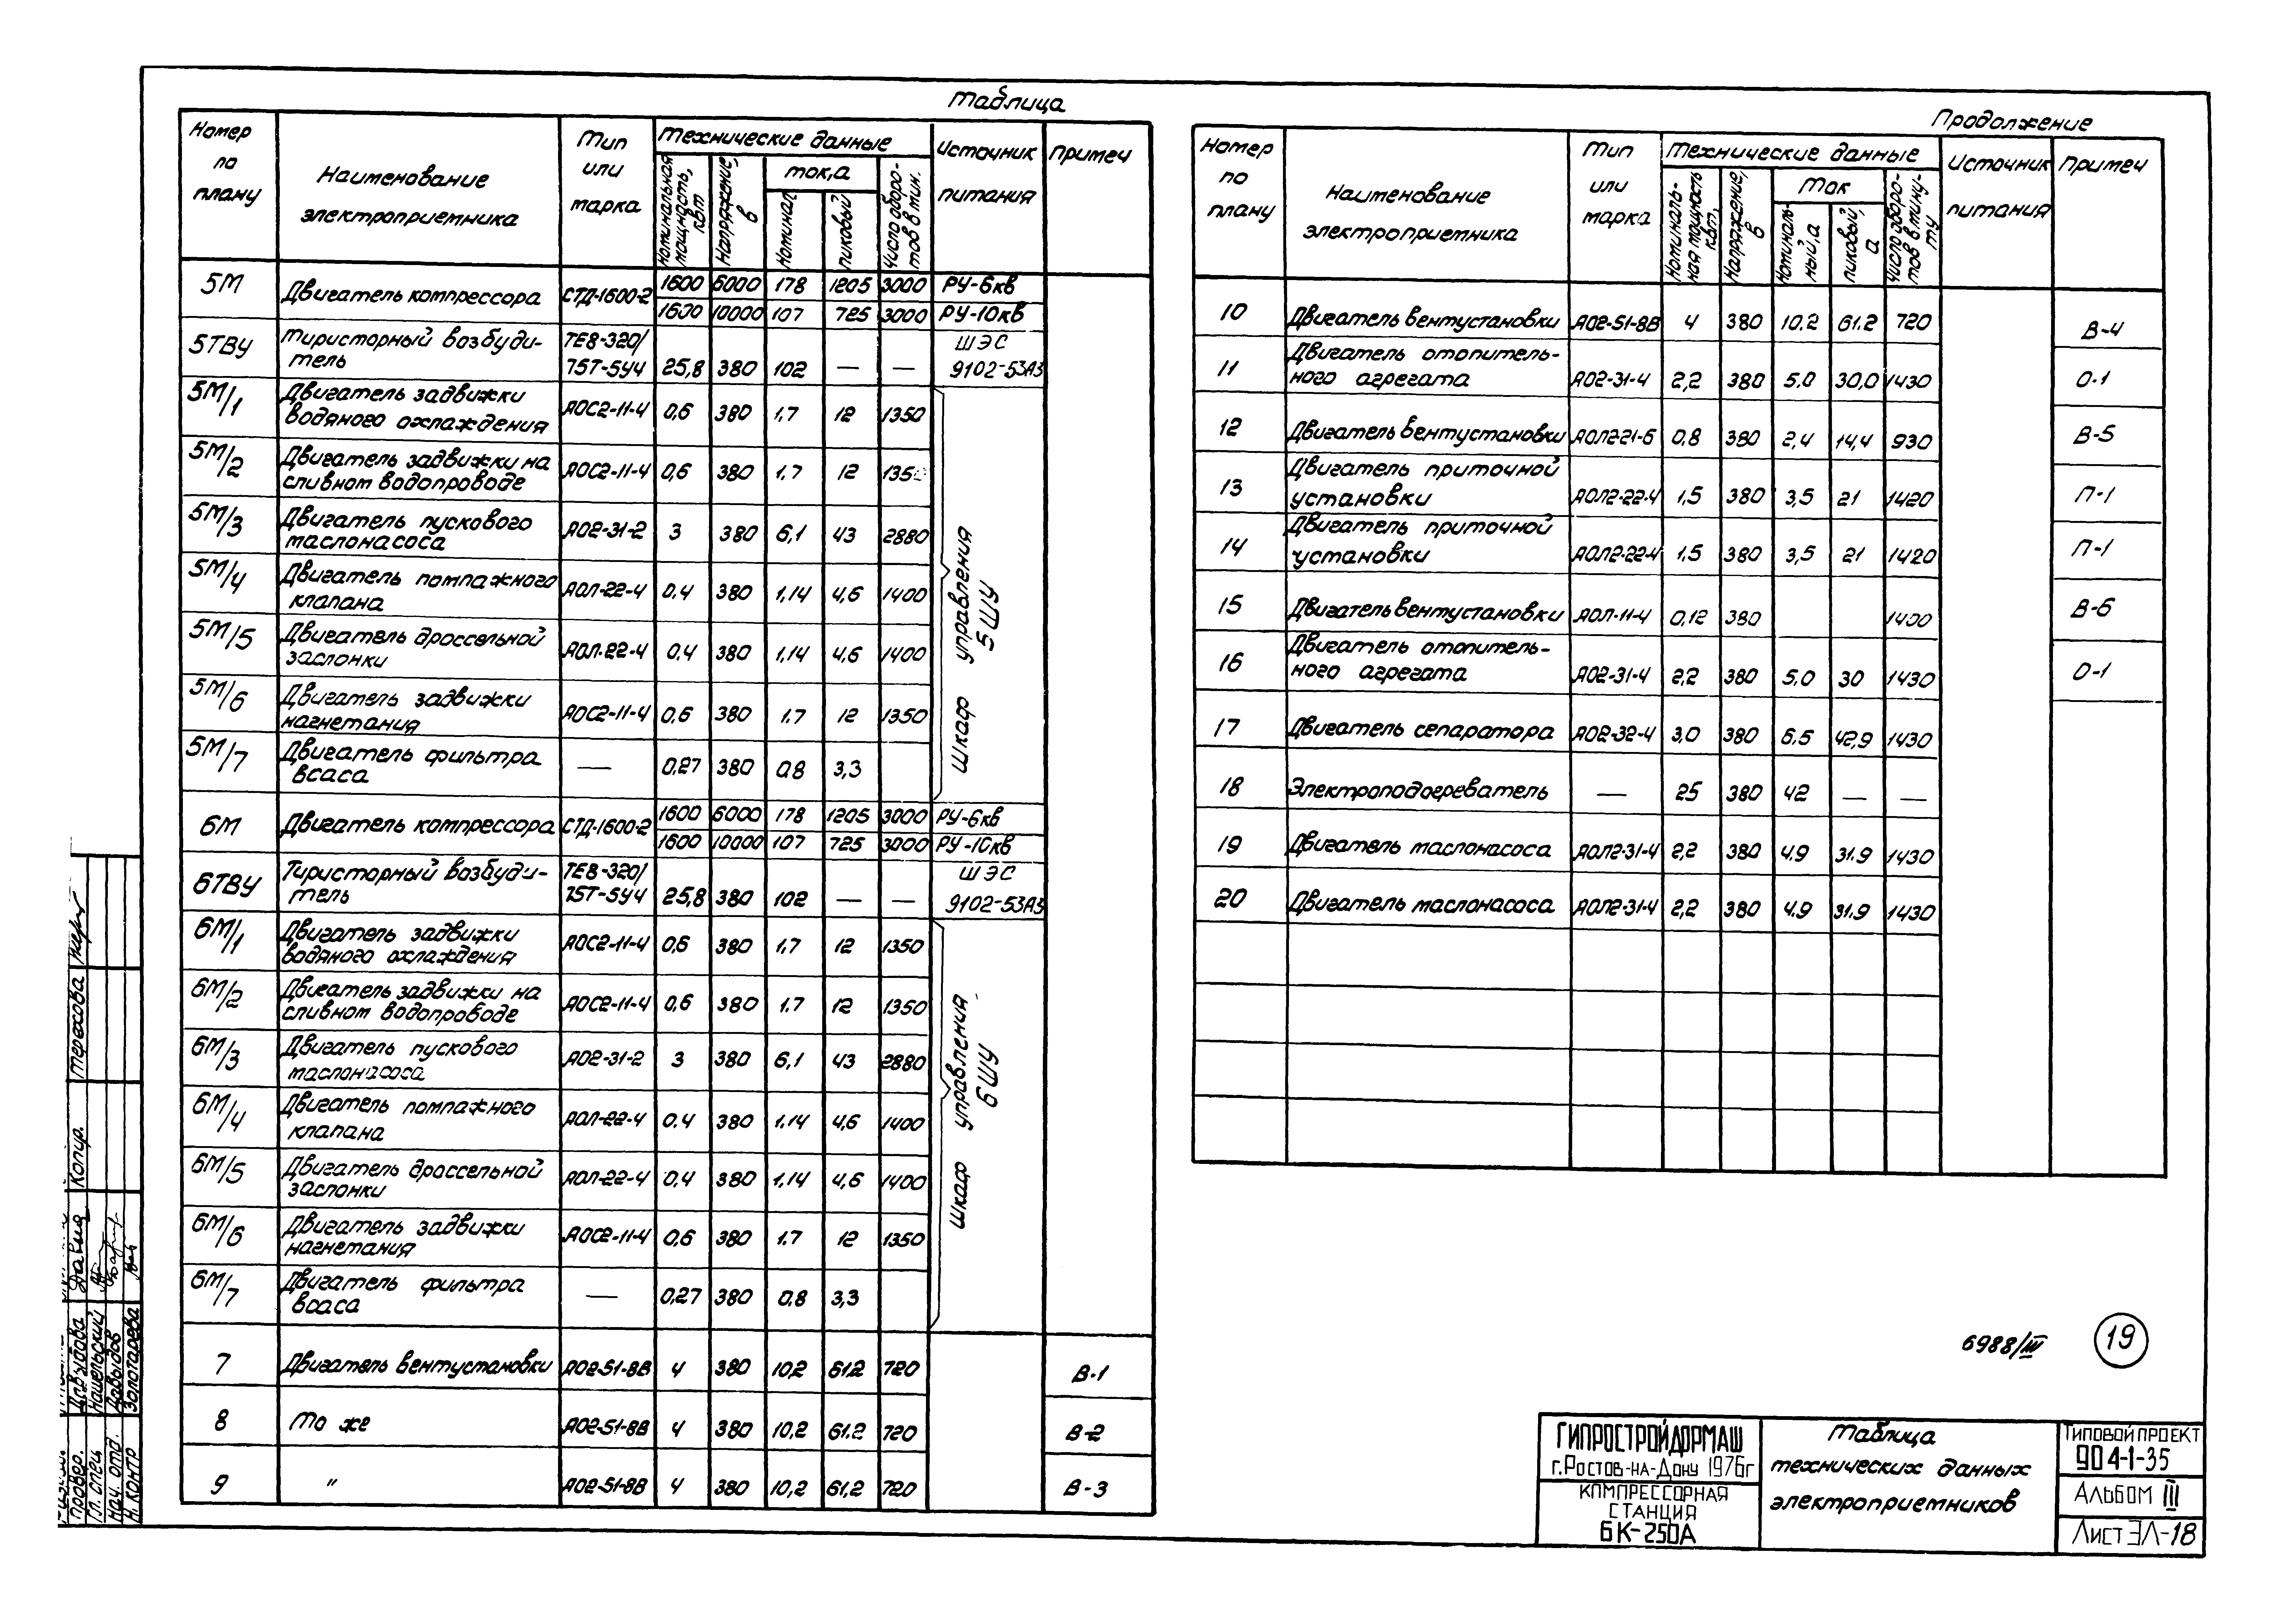 Таблица
Номер по плану | Наименование электроприемника | Тип или марка | Технические данные | Источник питания | Примеч
Номинальная мощность, квт | Напряжение, в | Ток, а | Число оборотов в мин.
Номинал | пиковый
5М | Двигатель компрессора | СТД-1600-2 | 1600 | 6000 | 178 | 1205 | 3000 | РУ-6кв
1600 | 10000 | 107 | 725 | 3000 | РУ-10кв
5ТВУ | Тиристорный возбуди-тель | ТЕ8-320/75Т-5У4 | 25,8 | 380 | 102 | — | — | ШЭС 9102-53А3
5М/1 | Двигатель задвижки водяного охлаждения | АОС2-11-4 | 0,6 | 380 | 1.7 | 12 | 1350
5М/2 | Двигатель задвижки на сливном водопроводе | АОС2-11-4 | 0,6 | 380 | 1.7 | 12 | 1350
5М/3 | Двигатель пускового маслонасоса | АО2-31-2 | 3 | 380 | 6,1 | 43 | 2880
5М/4 | Двигатель помпажного клапана | АОЛ-22-4 | 0.4 | 380 | 1,14 | 4,6 | 1400
5М/5 | Двигатель дроссельной заслонки | АОЛ-22-4 | 0.4 | 380 | 1,14 | 4,6 | 1400
5М/6 | Двигатель задвижки нагнетания | АОС2-11-4 | 0,6 | 380 | 1.7 | 12 | 1350
5М/7 | Двигатель фильтра всаса | — | 0,27 | 380 | 0.8 | 3,3
Шкаф управления 5ШУ
6М | Двигатель компрессора | СТД-1600-2 | 1600 | 6000 | 178 | 1205 | 3000 | РУ-6кв
1600 | 10000 | 107 | 725 | 3000 | РУ-10кв
6ТВУ | Тиристорный возбуди-тель | ТЕ8-320/75Т-5У4 | 25,8 | 380 | 102 | — | — | ШЭС 9102-53А3
6М/1 | Двигатель задвижки водяного охлаждения | АОС2-11-4 | 0,6 | 380 | 1.7 | 12 | 1350
6М/2 | Двигатель задвижки на сливном водопроводе | АОС2-11-4 | 0,6 | 380 | 1.7 | 12 | 1350
6М/3 | Двигатель пускового маслонасоса | АО2-31-2 | 3 | 380 | 6,1 | 43 | 2880
6М/4 | Двигатель помпажного клапана | АОЛ-22-4 | 0.4 | 380 | 1.14 | 4,6 | 1400
6М/5 | Двигатель дроссельной заслонки | АОЛ-22-4 | 0,4 | 380 | 1,14 | 4,6 | 1400
6М/6 | Двигатель задвижки нагнетания | АОС2-11-4 | 0,6 | 380 | 1.7 | 12 | 1350
6М/7 | Двигатель фильтра всаса | — | 0,27 | 380 | 0.8 | 3,3
Шкаф управления 6ШУ
7 | Двигатель вентустановки | АО2-51-8В | 4 | 380 | 10,2 | 61.2 | 720 | В-1
8 | То же | АО2-51-8В | 4 | 380 | 10,2 | 61.2 | 720 | В-2
9 | " | АО2-51-8В | 4 | 380 | 10,2 | 61,2 | 720 | В-3
Продолжение
Номер по плану | Наименование электроприемника | Тип или марка | Технические данные | Источник питания | Примеч
Номиналь-ная мощность квт, | Напряжение, в | Ток | Число оборо-тов в мину-ту
Номиналь-ный, а | пиковый, а
10 | Двигатель вентустановки | АО2-51-8В | 4 | 380 | 10.2 | 61.2 | 720 | В-4
11 | Двигатель отопитель-ного агрегата | АО2-31-4 | 2,2 | 380 | 5.0 | 30,0 | 1430 | О-1
12 | Двигатель вентустановки | АОЛ2-21-6 | 0,8 | 380 | 2,4 | 14,4 | 930 | В-5
13 | Двигатель приточной установки | АОЛ2-22-4 | 1,5 | 380 | 3,5 | 21 | 1420 | П-1
14 | Двигатель приточной установки | АОЛ2-22-4 | 1,5 | 380 | 3,5 | 21 | 1420 | П-1
15 | Двигатель вентустановки | АОЛ-11-4 | 0,12 | 380 | 1400 | В-6
16 | Двигатель отопитель-ного агрегата | АО2-31-4 | 2,2 | 380 | 5,0 | 30 | 1430 | О-1
17 | Двигатель сепаратора | АО2-32-4 | 3,0 | 380 | 6.5 | 42,9 | 1430
18 | Электроподогреватель | — | 25 | 380 | 42 | — | —
19 | Двигатель маслонасоса | АОЛ2-31-4 | 2,2 | 380 | 4.9 | 31.9 | 1430
20 | Двигатель маслонасоса | АОЛ2-31-4 | 2,2 | 380 | 4.9 | 31.9 | 1430
6988/III
19
ГИПРОСТРОЙДОРМАШ
г.Ростов-на-Дону 1976г
КОМПРЕССОРНАЯ
СТАНЦИЯ
6К-250А
Таблица
технических данных
электроприемников
Типовой проект
904-1-35
Альбом III
Лист ЭЛ-18
Провер. Давыдова
Гл. спец
Нач. отд. Давыдов
Н. контр Золотарева
Копир. Терехова